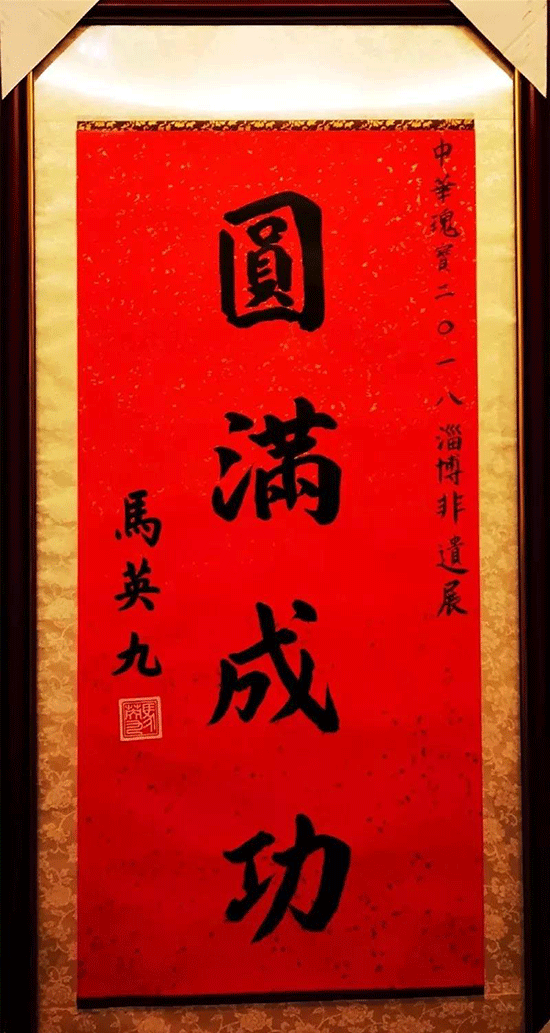 中華瑰寳二〇一八淄博非遺展
圓滿成功
馬英九